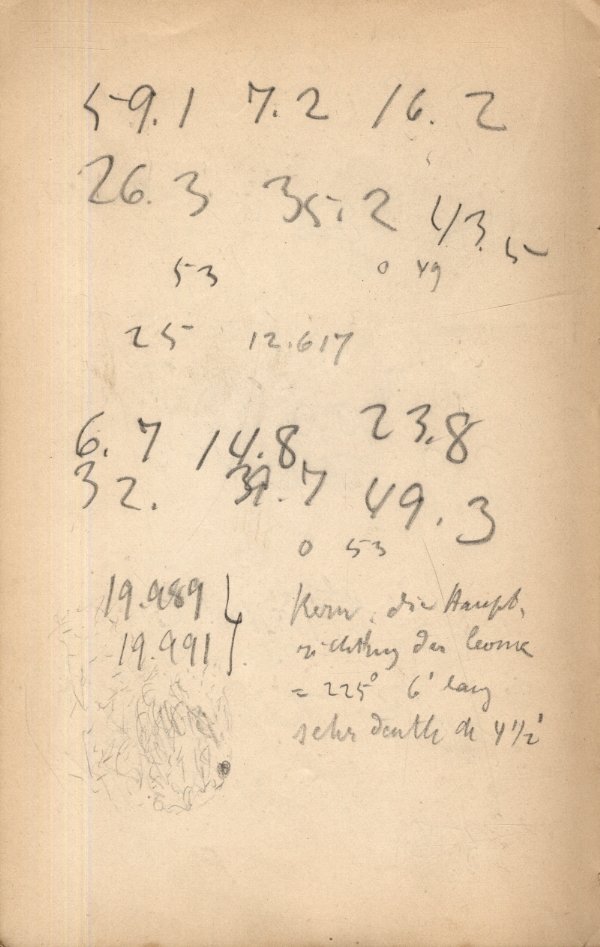 59.1 7.2 16.2
26.3 35.2 43.5
53 0 49
25 12.617
6.7 14.8 23.8
32. 39.7 49.3
0 53
19.989
19.991
Kern, die Haupt,
richtung der
= 225° 6' lang
sehr deutlich 4 1/2'